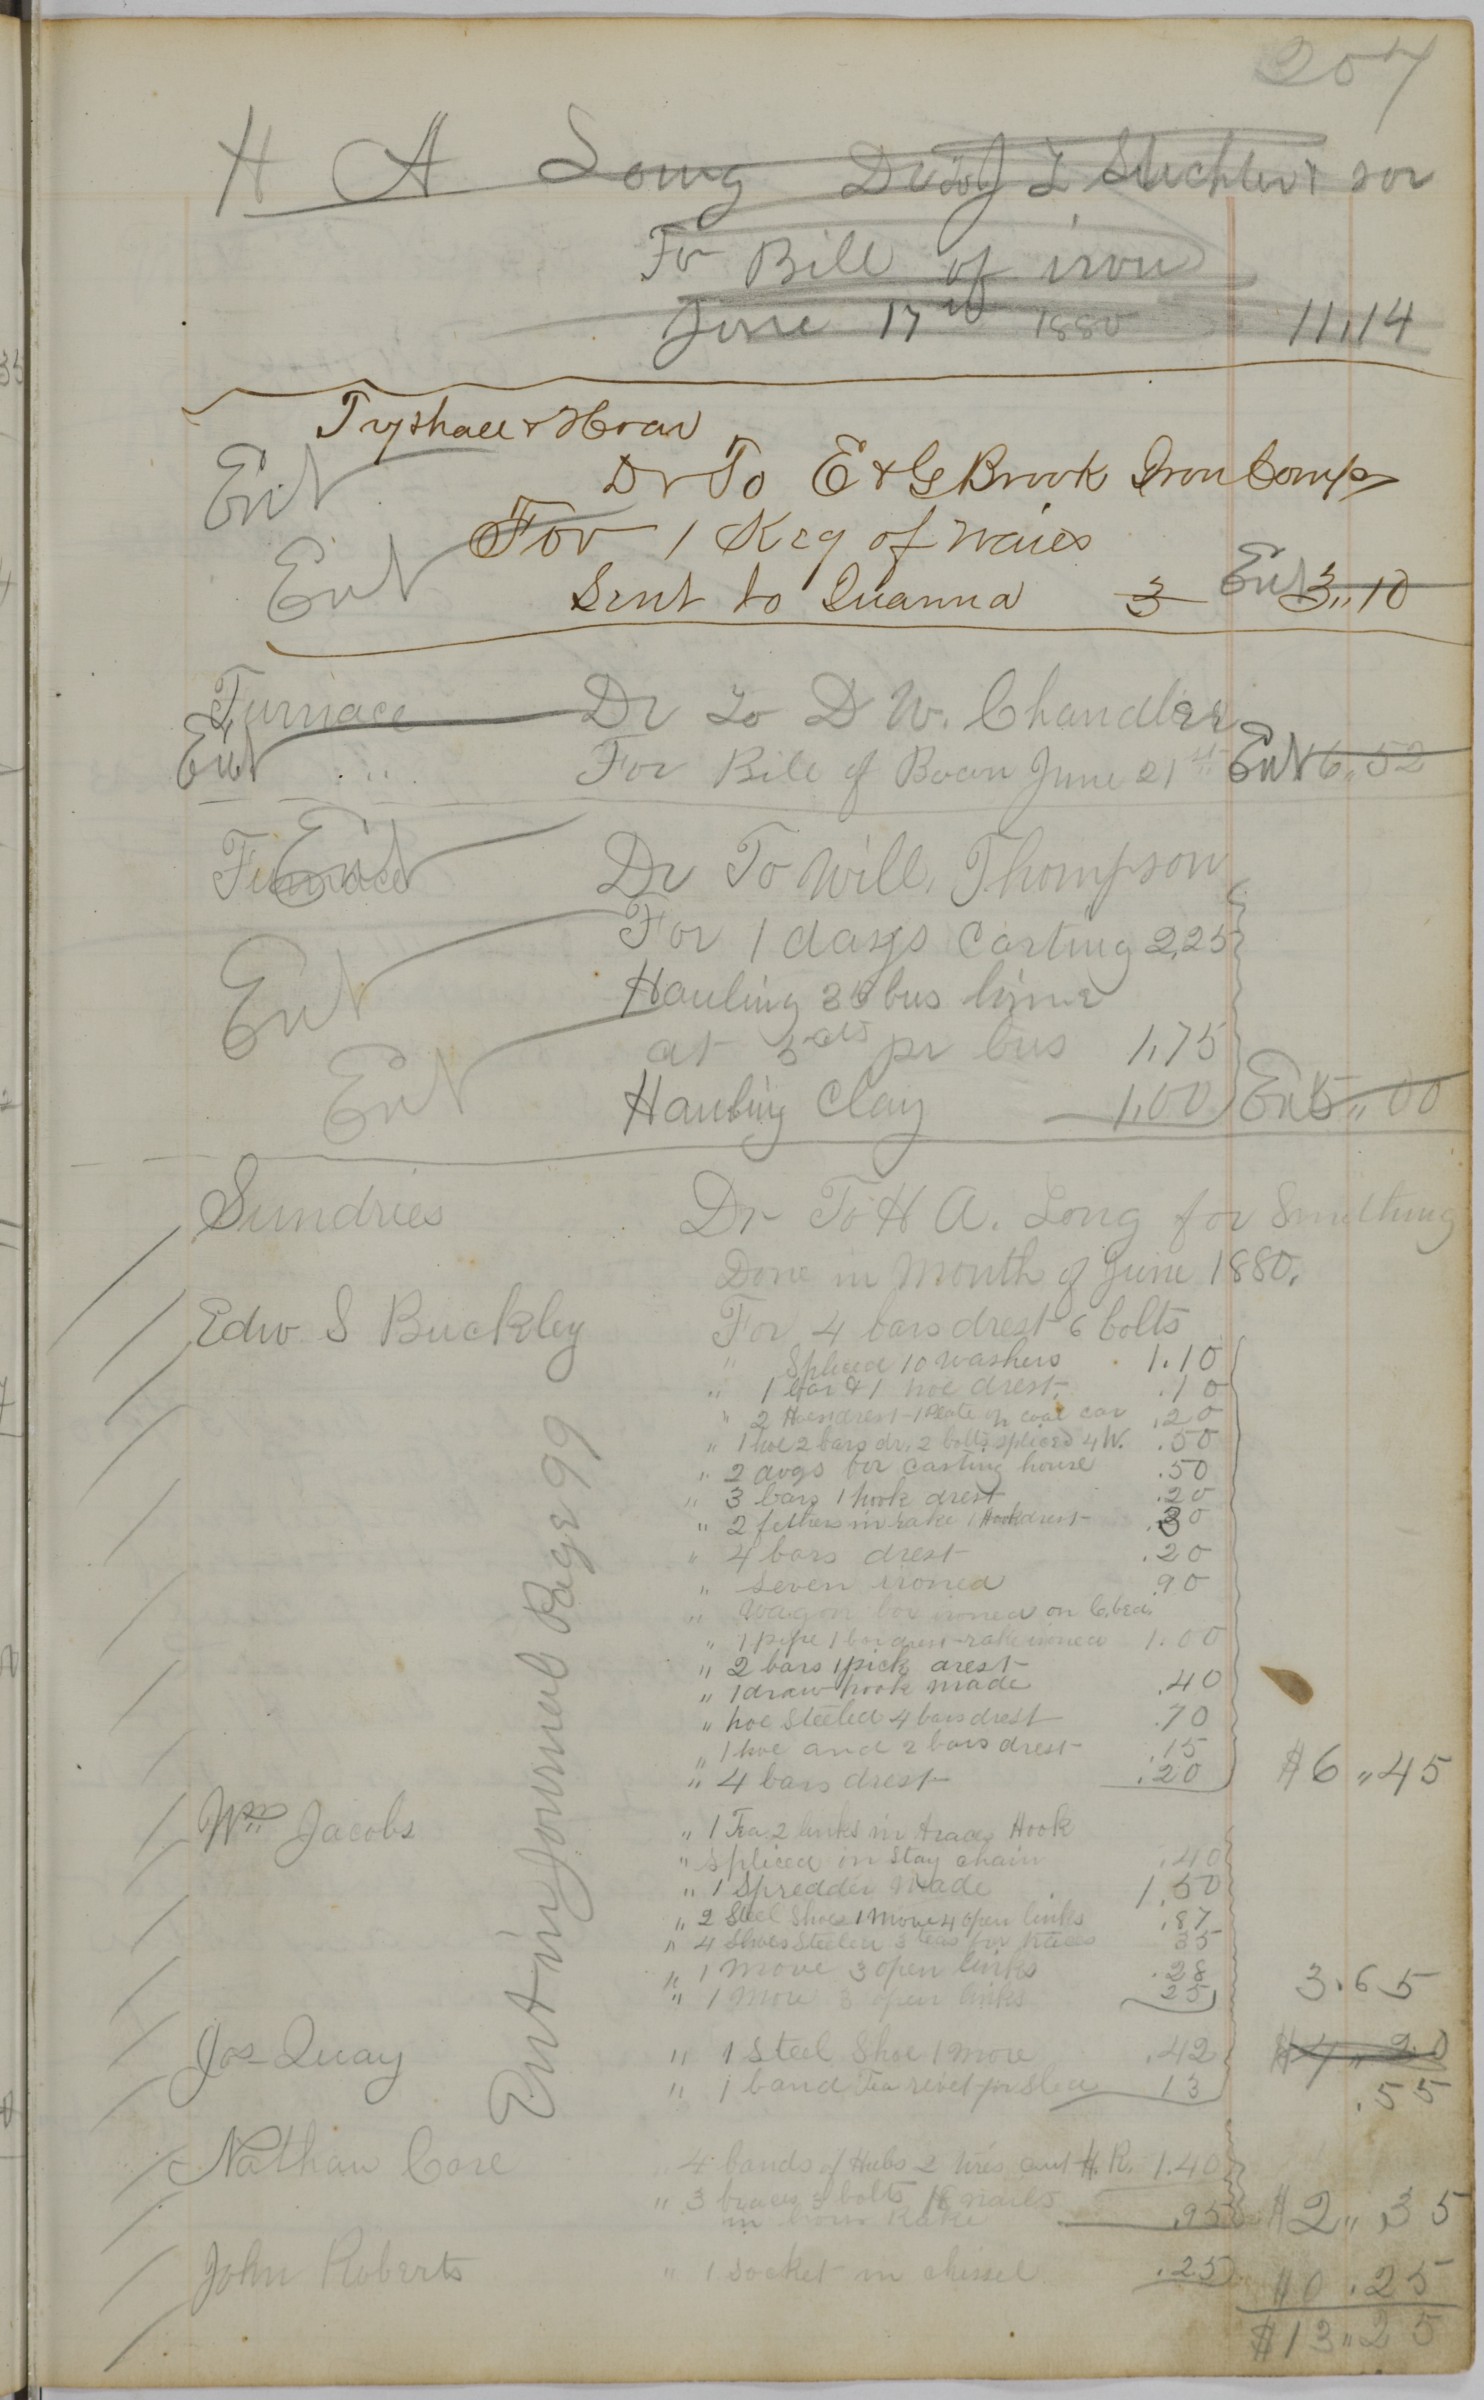 207
H A Long Dr to J L Slichter & son
For Bill of iron
June 17th 1880 11,14
Trythall & Hoar
Ent Dr To E & G Brook Iron Comp
For 1 Keg of Nails
Ent Sent to Joanna 3 Ent 3,,10
Furnace Dr To D W. Chandler
Ent For Bill of Bacon June 21st Ent 6,,52
Furnace Ent Dr To Will. Thompson
For 1 days Carting 2,25
Ent Hauling 35 bus lime
at 5 cts pr bus 1,75
Ent Hauling Clay 1,00 Ent 5,,00
Sundries Dr To H A. Long for Smithing
Done in Month of June 1880.
Edw S Buckley For 4 bars drest 6 bolts
" Spliced 10 washers 1.10
" 1 bar & 1 hoe drest .10
" 2 Hoes drest 1 Plate on coal car .20
" 1 hoe 2 bars dr. 2 bolts spliced 4 W. .50
" 2 dogs for Casting house .50
" 3 bars 1 hook drest .20
" 2 fethers in rake 1 Hook drest .30
" 4 bars drest .20
" Seven ironed .90
" Wagon box ironed on
" 1 pipe 1 bar drest rake ironed 1.00
" 2 bars 1 pick drest
" 1 draw hook made .40
" hoe Steeled 4 bars drest .70
" 1 hoe and 2 bars drest .15
" 4 bars drest .20 $6,,45
Ent in Journal Page 99
Wm Jacobs " 1 Tea 2 links in traces Hook
" Spliced in Stay chain .40
" 1 Spredder Made 1.50
" 2 Steel Shoes 1 Move 4 open links .87
" 4 Shoes Steeled 3 teas for traces 35
" 1 Move 3 open links .28
" 1 Move 3 open links 25 3.65
Jos Quay " 1 Steel Shoe 1 Move .42 $4,,20
" 1 band Tea rivet for Sled 13 .55
Nathan Core 4 bands of Hubs 2 tires cut H. R. 1.40
" 3 braces 3 bolts 18 nails
in Rake .95 $2,,35
John Roberts " 1 Socket in chissel .25 $0.25
$13,,25